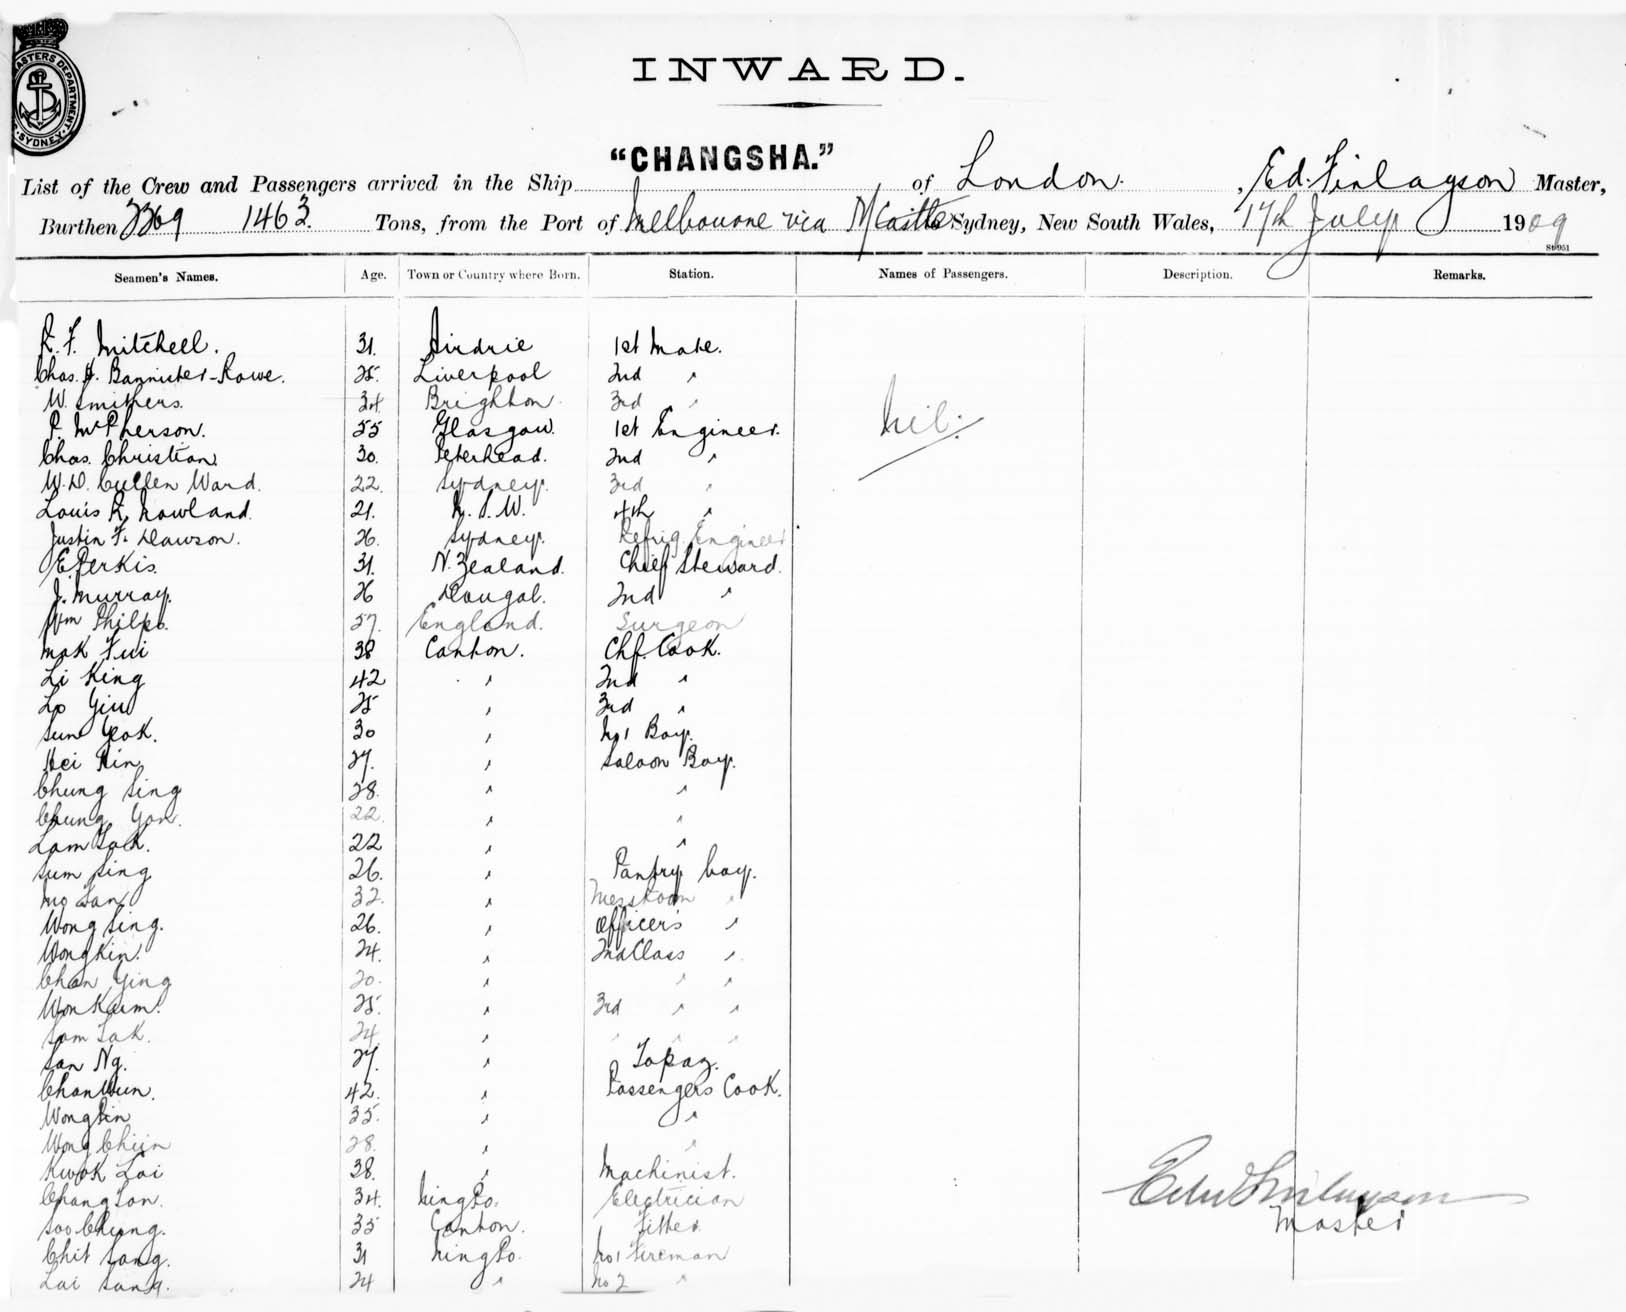 MASTERS DEPARTMENT
SYDNEY
INWARD.
"CHANGSHA."
List of the Crew and Passengers arrived in the Ship of London. , Ed. Finlayson Master,
Burthen 2269 1463. Tons, from the Port of Melbourne via N/Castle Sydney, New South Wales, 17th July 1909
Seamen's Names. Age. Town or Country where Born. Station. Names of Passengers. Description. Remarks.
R. F. Mitchell. 31. Airdrie 1st Mate.
Chas. H. Bannister-Rowe. 25. Liverpool 2nd "
W. Smithers. 34. Brighton. 3rd "
P. McPherson. 55 Glasgow. 1st Engineer. Nil.
Chas. Christian. 30. Peterhead. 2nd "
W. D. Cullen Ward. 22. Sydney. 3rd "
Louis R. Rowland. 21. N. S. W. 4th "
Justin F. Dawson. 26. Sydney. Refrig. Engineer
E. Perkis. 31. N. Zealand. Chief Steward.
J. Murray. 26 2nd "
Wm Philps. 57. England. Surgeon
Mak Fui 38 Canton. Chf. Cook.
Li King 42 " 2nd "
Lo Yiu 25 " 3rd "
Sum Yeok. 30 " No 1 Boy.
Hei Kin 27. " Saloon Boy.
Chung Sing 28. " "
Chung Yon. 22. " "
Lam 22 " "
Sum Sing 26. " Pantry boy.
32. " Messroom "
Wong Sing. 26. " Officer's "
Wong Kin. 24. " 2nd Class "
Chan Ying 20. " " "
Won Kum. 25. " 3rd " "
Sam Sak. 24 " " " "
San Ng. 27. " Topaz.
Chan Wun. 42. " Passengers Cook.
Wong 35. " "
Wong Chun 28. " "
Kwok Loi 38. " Machinist.
Chang Son. 34. Ning Po. Electrician
Soo Chung. 35 Canton. Fitter
Chit Song. 31 Ning Po. No 1 Fireman
Lai Sang. 24 " No 2 "
Edw Finlayson
Master